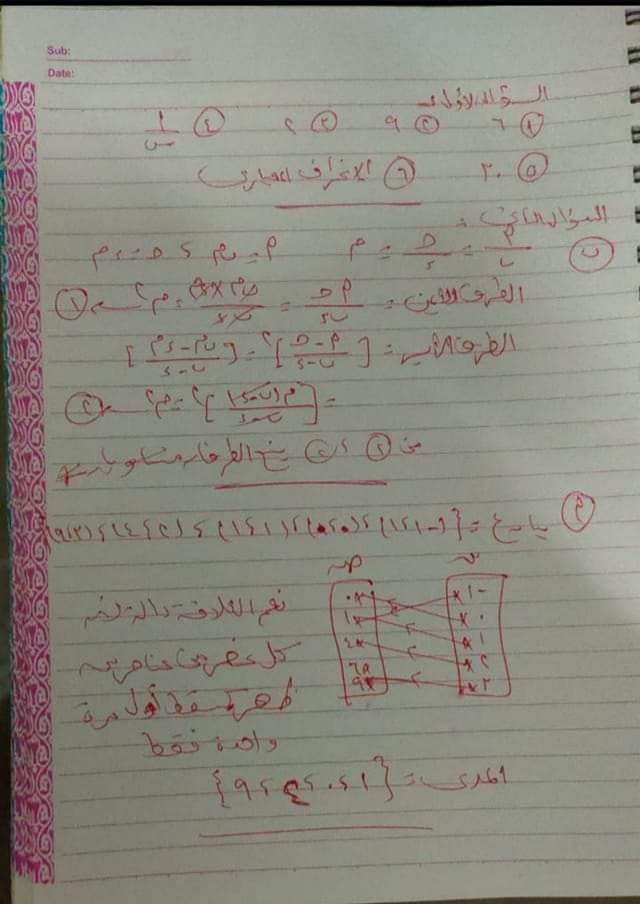 Sub:
Date:
السؤال الأول
① ٦ ② ٩ ③ ٢ ④ ١/س
⑤ ٢٠ ⑥ الانحراف المعياري
السؤال الثاني:
ب) أ/ب = حـ/د = م أ = ب م ، حـ = د م
الطرف الأيمن = أ حـ / ب د = (ب م × د م) / (ب د) = م² ← ①
الطرف الأيسر = [(أ - حـ)/(ب - د)]² = [(ب م - د م)/(ب - د)]²
= [م(ب - د)/(ب - د)]² = م² ← ②
من ① ، ② ينتج الطرفان متساويان
أ) بيان ع = {(-١،١)، (٠،٠)، (١،١)، (٢،٤)، (٣،٩)}
س ص
-١ ٠
٠ ١
١ ٤
٢
٣ ٩
نعم العلاقة دالة لأنه
كل عنصر من عناصر س
ظهر كمسقط أول مرة
واحدة فقط
المدى = {١، ٠، ٤، ٩}